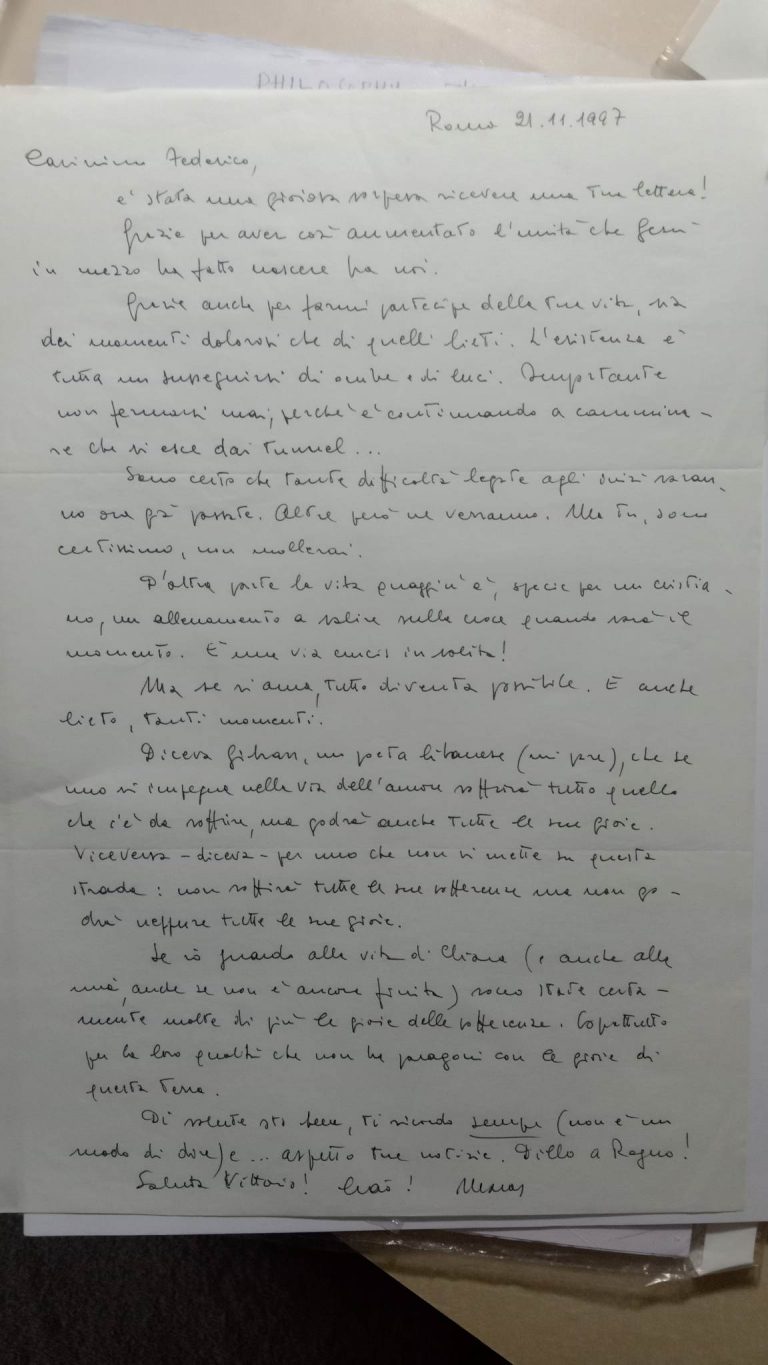 PHILOSOPHY
Roma 21.11.1997
Carissimo Federico,
e' stata una gioiosa sorpresa ricevere una tua lettera!
Grazie per aver così aumentato l'unità che Gesù
in mezzo ha fatto nascere fra noi.
Grazie anche per farmi partecipe della tua vita, sia
dei momenti dolorosi che di quelli lieti. L'esistenza è
tutta un susseguirsi di ombre e di luci. Importante
non fermarsi mai, perché è continuando a cammina-
re che si esce dai tunnel...
Sono certo che tante difficoltà legate agli inizi saran-
no ora già passate. Altre però ne verranno. Ma tu, sono
certissimo, non mollerai.
D'altra parte la vita quaggiù è, specie per un cristia-
no, un allenamento a salire sulla croce quando sarà il
momento. È una via crucis insolita!
Ma se si ama, tutto diventa possibile. E anche
lieto, tanti momenti.
Diceva Gibran, un poeta libanese (mi pare), che se
uno si impegna nella via dell'amore soffrirà tutto quello
che c'è da soffrire, ma godrà anche tutte le sue gioie.
Viceversa - diceva - per uno che non si mette su questa
strada: non soffrirà tutte le sue sofferenze ma non go-
drà neppure tutte le sue gioie.
Se io guardo alla vita di Chiara (e anche alla
mia, anche se non è ancora finita) sono state certa-
mente molte di più le gioie delle sofferenze. Soprattutto
per la loro qualità che non ha paragoni con le gioie di
questa terra.
Di salute sto bene, ti ricordo sempre (non è un
modo di dire) e ... aspetto tue notizie. Dillo a Ragno!
Saluta Vittorio! Ciao!